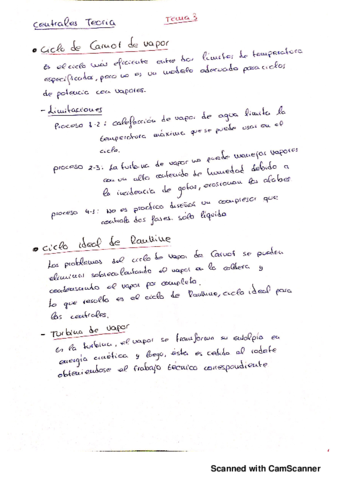 Centrales Teoria
Tema 3
• Ciclo de Carnot de vapor
Es el ciclo más eficiente entre dos límites de temperatura
especificados, pero no es un modelo adecuado para ciclos
de potencia con vapores.
- Limitaciones
Proceso 1-2: calefacción de vapor de agua limita la
temperatura máxima que se puede usar en el
ciclo.
proceso 2-3: La turbina de vapor no puede manejar vapores
con un alto contenido de humedad debido a
la incidencia de gotas, erosionan los álabes
proceso 4-1: No es práctico diseñar un compresor que
controle dos fases. sólo líquido
• Ciclo ideal de Rankine
Los problemas del ciclo de vapor de Carnot se pueden
eliminar sobrecalentando el vapor en la caldera y
condensando el vapor por completo.
Lo que resulta es el ciclo de Rankine, ciclo ideal para
las centrales.
- Turbina de vapor
En la turbina, el vapor se transforma su entalpía en
energía cinética y luego, ésta es cedida al rodete
obteniéndose el trabajo técnico correspondiente
Scanned with CamScanner